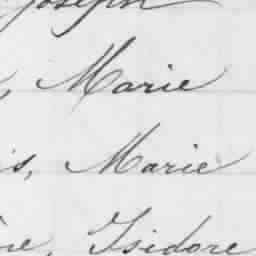 Joseph
, Marie
is, Marie
re, Isidore